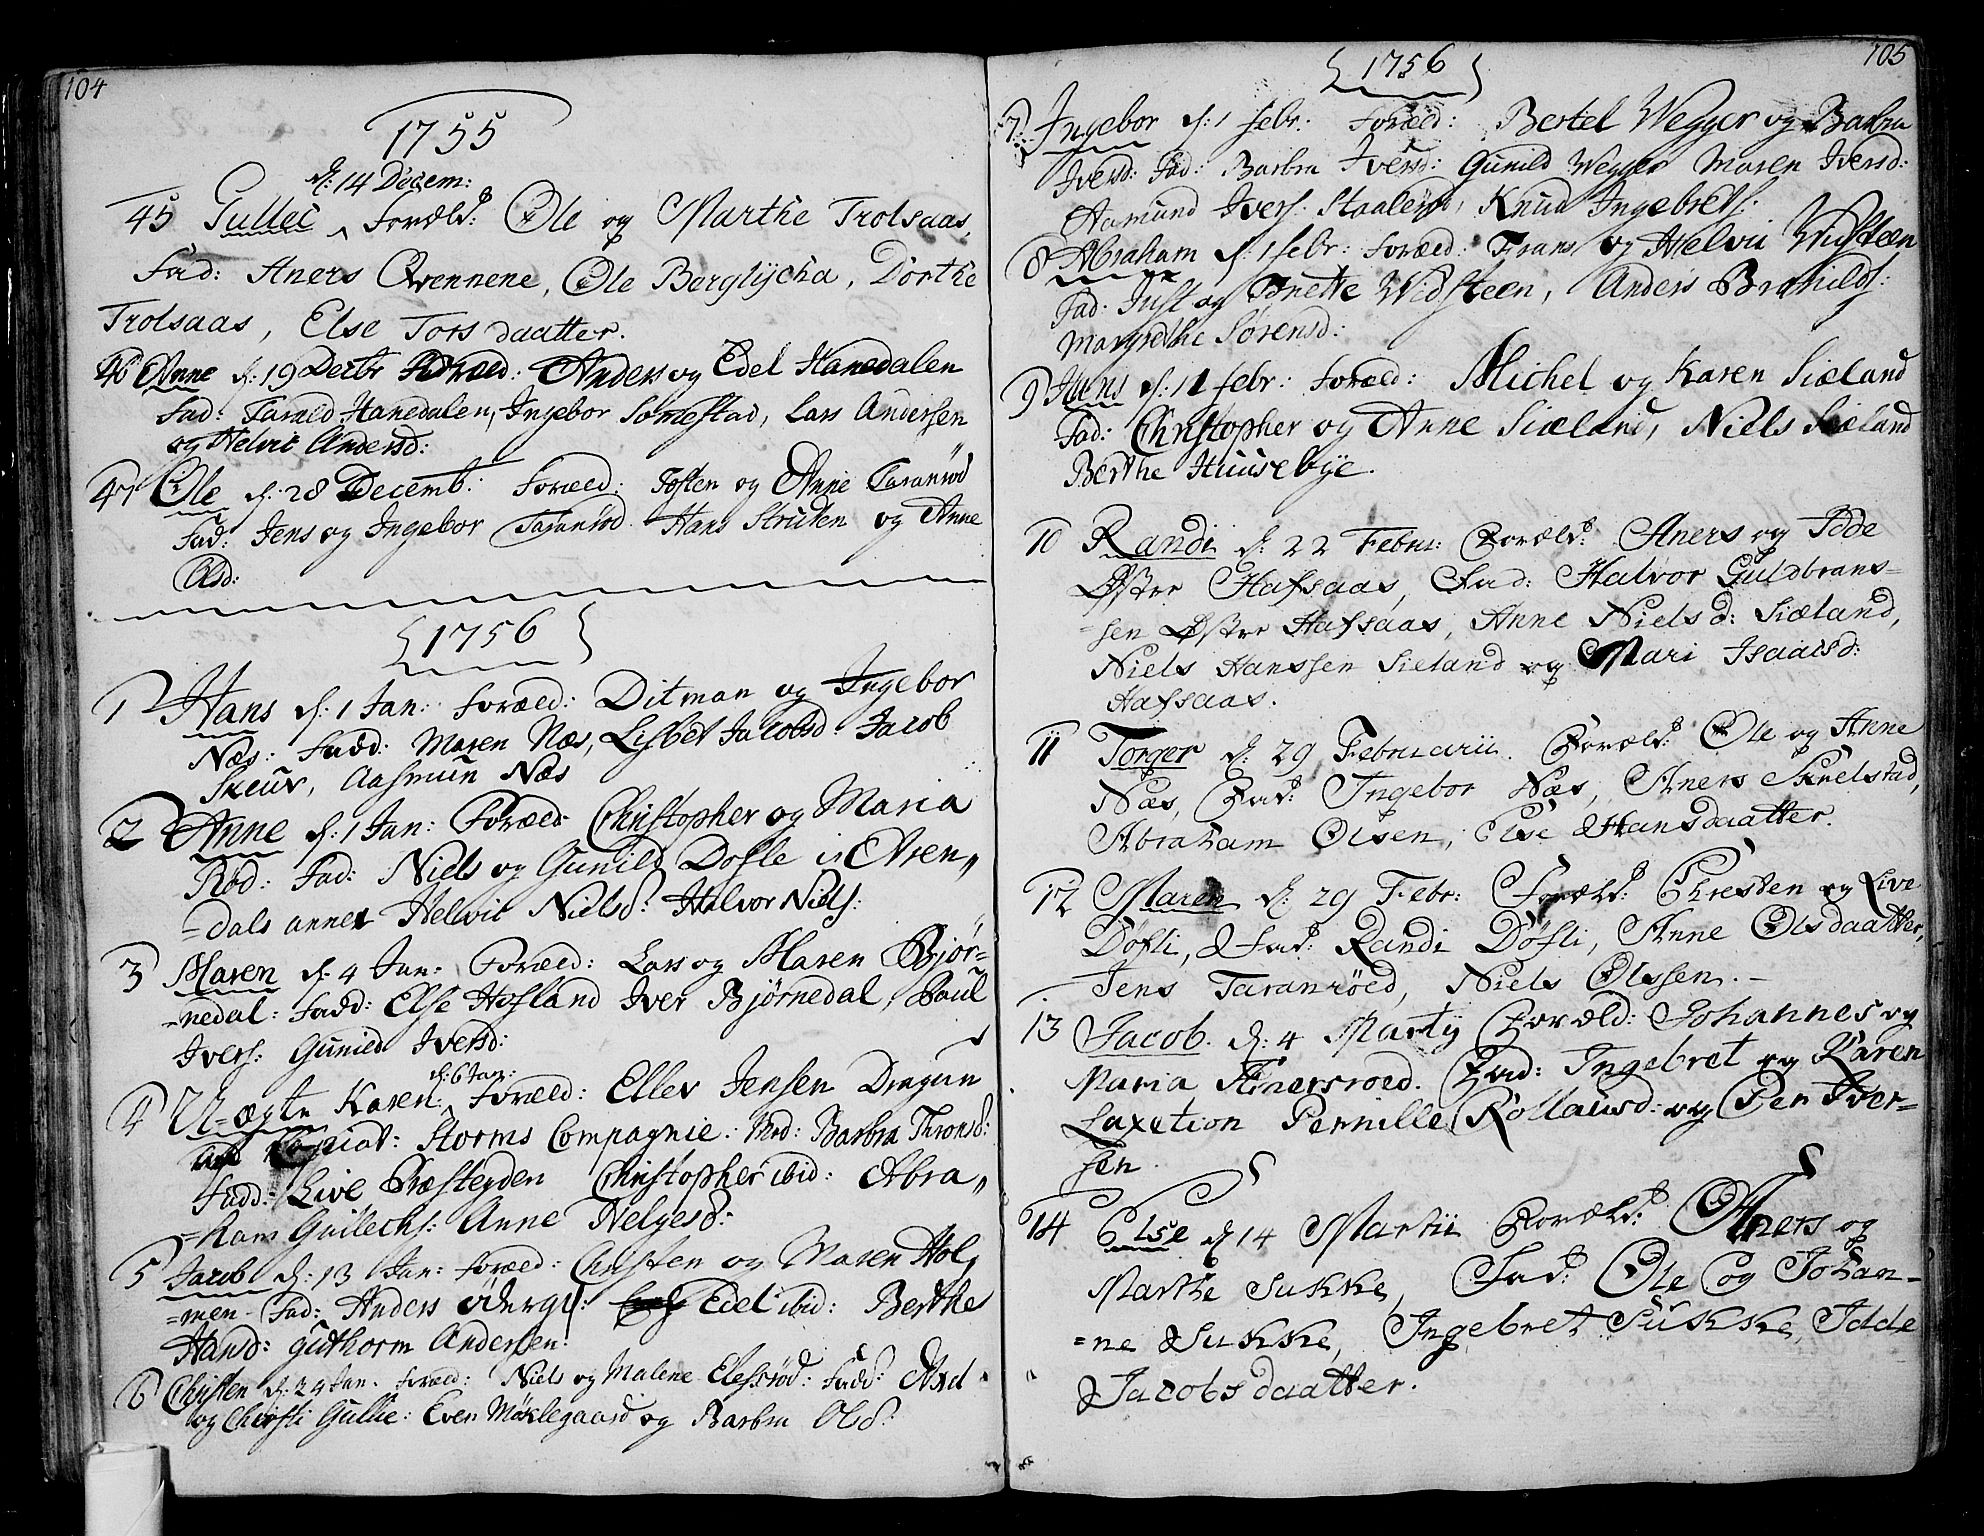 104
1755
d: 14 Decem:
45 Gullec Foræld: Ole og Marthe Trolsaas,
Fad: Aners Qvennene, Ole Berglycha, Dorthe
Trolsaas, Else Tors daatter.
46 Anne d: 19 Decbr Foræld: Anders og Edel Hanedalen
Fad: Tarald Hanedalen, Ingebor Sømestad, Lars Andersen
og Helvic Andersd:
47 Ole d: 28 Decemb: Foræld: Joften og Anne Taranrød
Fad: Jens og Ingebor Taranrød. Hans Struten og Anne
Olsd:
1756
1 Hans d: 1 Jan: Foræld: Ditman og Ingebor
Næs: Fadd: Maren Næs, Lisbet Jacobsd: Jacob
Skeuv, Aasmun Næs
2 Anne d: 1 Jan: Foræld Christopher og Maria
Rød: Fad: Niels og Gunild Dofle in Aren„
=dals annex Helvic Nielsd: Halvor Niels:
3 Maren d: 4 Jan: Foræld: Lars og Maren Bjør=
=nedal: Fadd: Else Hofland Iver Bjørnedal, Paul
Ivers: Gunild Iversd:
d: 6 Jan:
4 U-ægte Karen: Foræld: Ellev Jensen Dragun
Storms Compagnie: Mod: Barbra Thronsd:
Fadd: Live Præstegden Christopher ibid: Abra„
=ham Guilechs: Anne Helgesd:
5 Jacob d: 13 Jan: Foræld: Christen og Maren Hol,
=men Fad: Anders Edel ibid: Berthe
Hansd: Guthorm Andersen:
6 Christen d: 24 Jan. Foræld: Niels og Malene Elefsrød: Fadd: Axel
og Christi Gullie: Even Møklegaard og Barbra Olsd:
105
1756
7 Ingebor d: 1 febr: Foræld: Bertel Wegger og Barbra
Iversd: Fad: Barbra Iversd: Gunild Wegger Maren Iversd:
Aamund Ivers: Staaleyn, Knud Ingebrets:
8 Abraham d: 1 febr: Foræld: Frans og Helvii Widsteen
Fad: Just og Tonette Widsteen, Anders Brynilds:
Margrethe Sørensd:
9 Hans d: 11 febr: Foræld: Michel og Karen Siæland
Fad: Christopher og Anne Siæland, Niels Siæland
Berthe Huusebye.
10 Randi d: 22 Febru: Foræld: Aners og Idde
Østre Hafsaas, Fad: Halvor Guldbrans=
=sen Østre Hafsaas, Anne Nielsd: Siæland,
Niels Hanssen Sieland og Mari Isaacsd:
Hafsaas.
11 Torger d: 29 Februarii. Foræld: Ole og Anne
Næs, Fad: Ingebor Næs, Aners Skrelstad,
Abraham Olsen, Else Hansdaatter.
12 Maren d: 29 Febr: Foræld: Chresten og Live
Døfli, Fad: Randi Døfli, Anne Olsdaatter,
Jens Taranrøed, Niels Olssen. -
13 Jacob. d: 4 Martij Foræld: Johannes og
Maria Anersroed. Fad: Ingebret og Karen
Laxetion Pernille Rollausd: og Peer Iver=
sen.
14 Else d 14 Martii Foræld: Aners og
Marthe Sukke, Fad: Ole og Johan=
=ne Sukke, Ingebret Sukke, Idde
Jacobsdaatter.